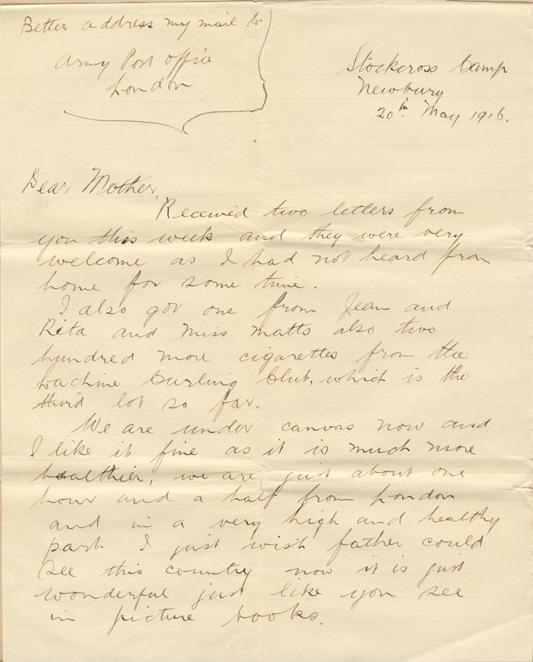 Better address my mail to
Army Post Office
London
Stockcross Camp
Newbury
20th May 1916.
Dear Mother,
Received two letters from
you this week and they were very
welcome as I had not heard from
home for some time.
I also got one from Jean and
Rita and Miss Matts also two
hundred more cigarettes from the
Lachine Curling Club, which is the
third lot so far.
We are under canvas now and
I like it fine as it is much more
healthier, we are just about one
hour and a half from London
and in a very high and healthy
part. I just wish father could
see this country now it is just
wonderful just like you see
in picture books.